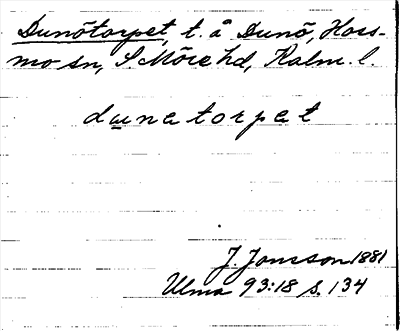 Dunötorpet, t. å Dunö, Hoss-
mo sn, S. Möre hd, Kalm. l.
dunetorpet
J. Jonsson 1881
Ulma 93:18 s. 134